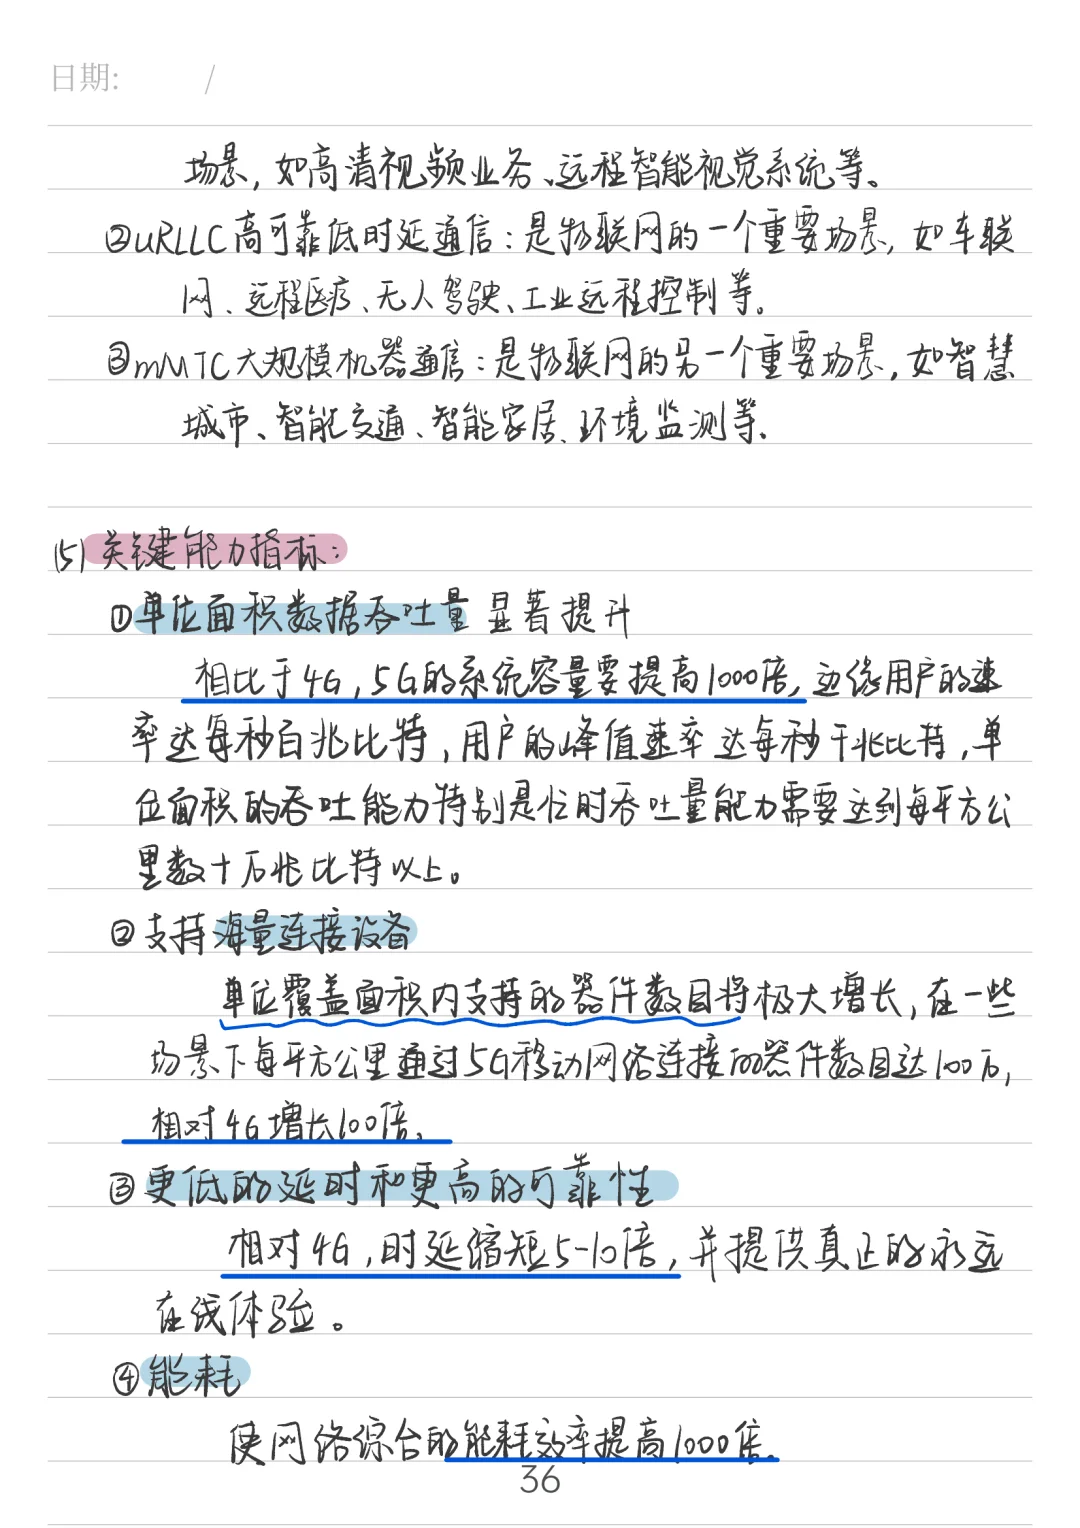 日期: /
场景,如高清视频业务、远程智能视觉系统等。
②uRLLC高可靠低时延通信:是物联网的一个重要场景,如车联
网、远程医疗、无人驾驶、工业远程控制等。
③mMTC大规模机器通信:是物联网的另一个重要场景,如智慧
城市、智能交通、智能家居、环境监测等、
(5)关键能力指标:
①单位面积数据吞吐量显著提升
相比于4G,5G的系统容量要提高1000倍,边缘用户的速
率达每秒百兆比特,用户的峰值速率达每秒千兆比特,单
位面积的吞吐能力特别是忙时吞吐量能力需要达到每平方公
里数十万兆比特以上。
②支持海量连接设备
单位覆盖面积内支持的器件数目将极大增长,在一些
场景下每平方公里通过5G移动网络连接的器件数目达100万,
相对4G增长100倍、
③更低的延时和更高的可靠性
相对4G,时延缩短5-10倍,并提供真正的永远
在线体验。
④能耗
使网络综合的能耗效率提高1000倍、
36